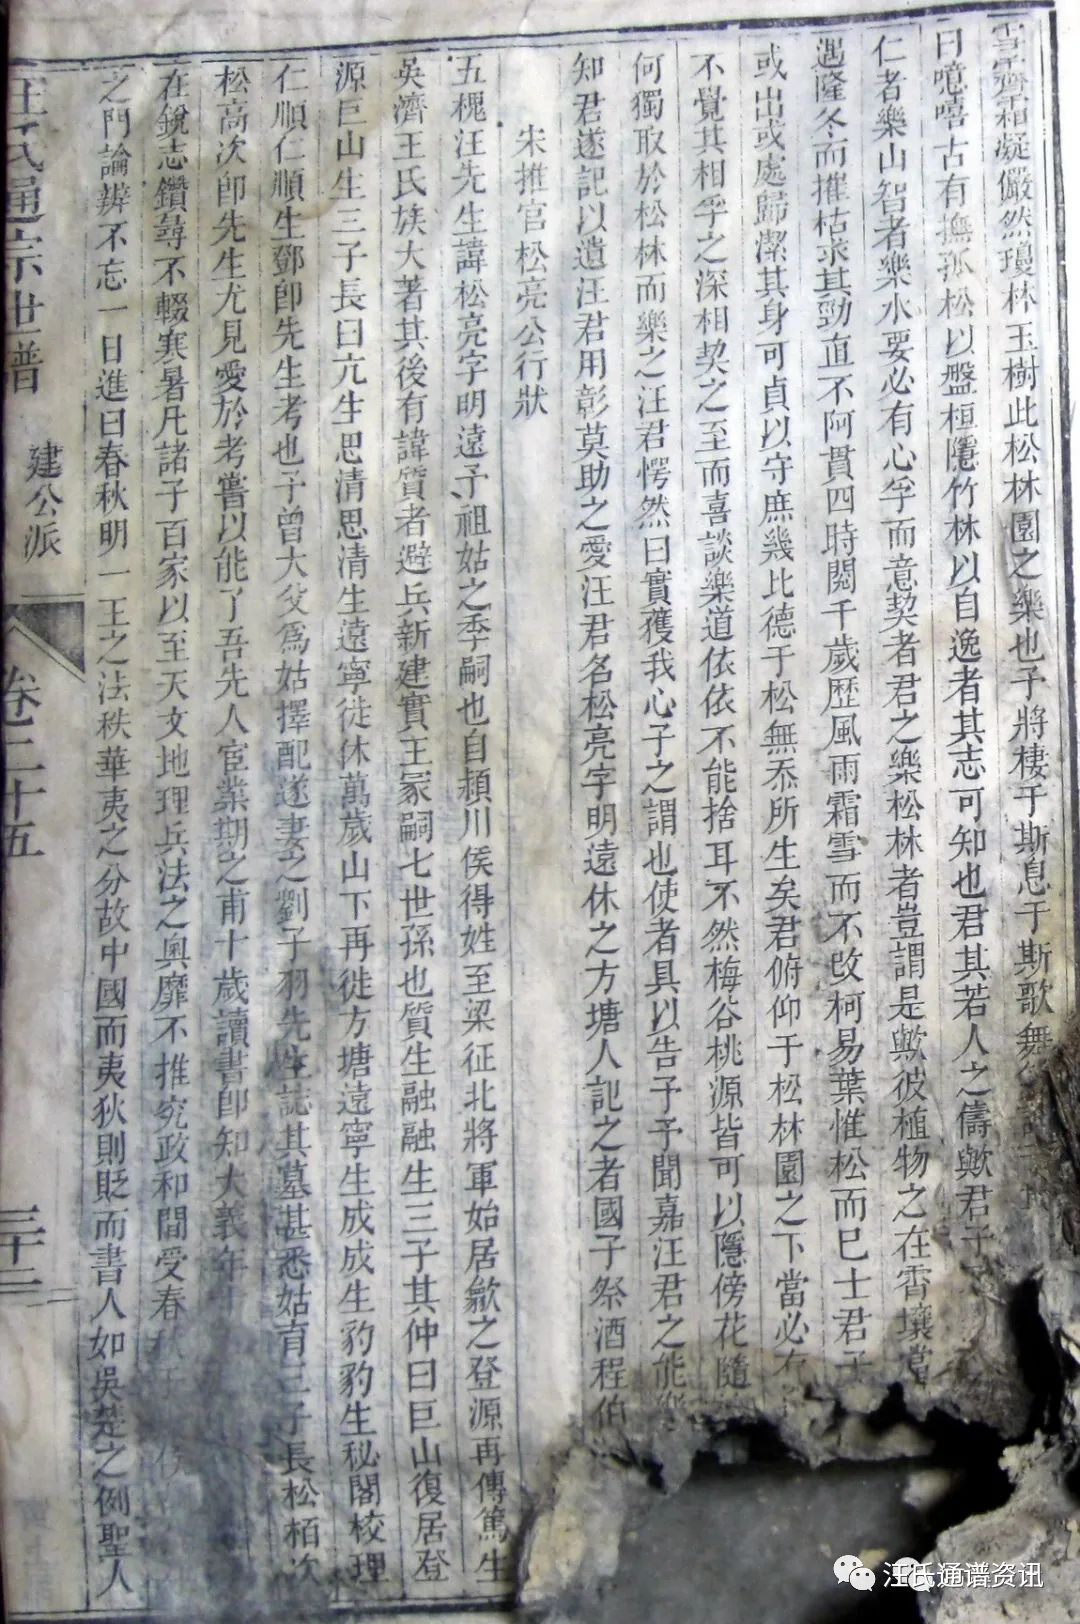 霜凝儼然瓊林玉樹此松林園之樂也予將棲于斯息于斯歌舞
曰噫嘻古有撫孤松以盤桓隱竹林以自逸者其志可知也君其若人之儔歟君子
仁者樂山智者樂水要必有心孚而意契者君之樂松林者豈謂是歟彼植物之在霄壤當
遇隆冬而摧枯求其勁直不阿貫四時閱千歲歷風雨霜雪而不改柯易葉惟松而已士君子
或出或處歸潔其身可貞以守庶幾比德于松無忝所生矣君俯仰于松林園之下當必有
不覺其相孚之深相契之至而喜談樂道依依不能捨耳不然梅谷桃源皆可以隱傍花隨
何獨取於松林而樂之汪君愕然曰實獲我心子之謂也使者具以告予予聞嘉汪君之能樂
知君遂記以遺汪君用彰莫助之愛汪君名松亮字明遠休之方塘人記之者國子祭酒程伯
宋推官松亮公行狀
五槐汪先生諱松亮字明遠予祖姑之季嗣也自頴川侯得姓至梁征北將軍始居歙之登源再傳篤生
吳濟王氏族大著其後有諱質者避兵新建實王冢嗣七世孫也質生融融生三子其仲曰巨山復居登
源巨山生三子長曰亢生思清思清生遠寧徙休萬歲山下再徙方塘遠寧生成成生豹豹生秘閣校理
仁順仁順生鄧卽先生考也予曾大父爲姑擇配遂妻之劉子羽先生誌其墓甚悉姑育三子長松栢次
松高次卽先生尤見愛於考嘗以能了吾先人宦業期之甫十歲讀書卽知大義年
在銳志鑽尋不輟寒暑凡諸子百家以至天文地理兵法之奧靡不推究政和間受春秋于
之門論辨不忘一日進曰春秋明一王之法秩華夷之分故中國而夷狄則貶而書人如吳楚之例聖人
汪氏通宗世譜 建公派 卷二十五 三十二
汪氏通谱资讯